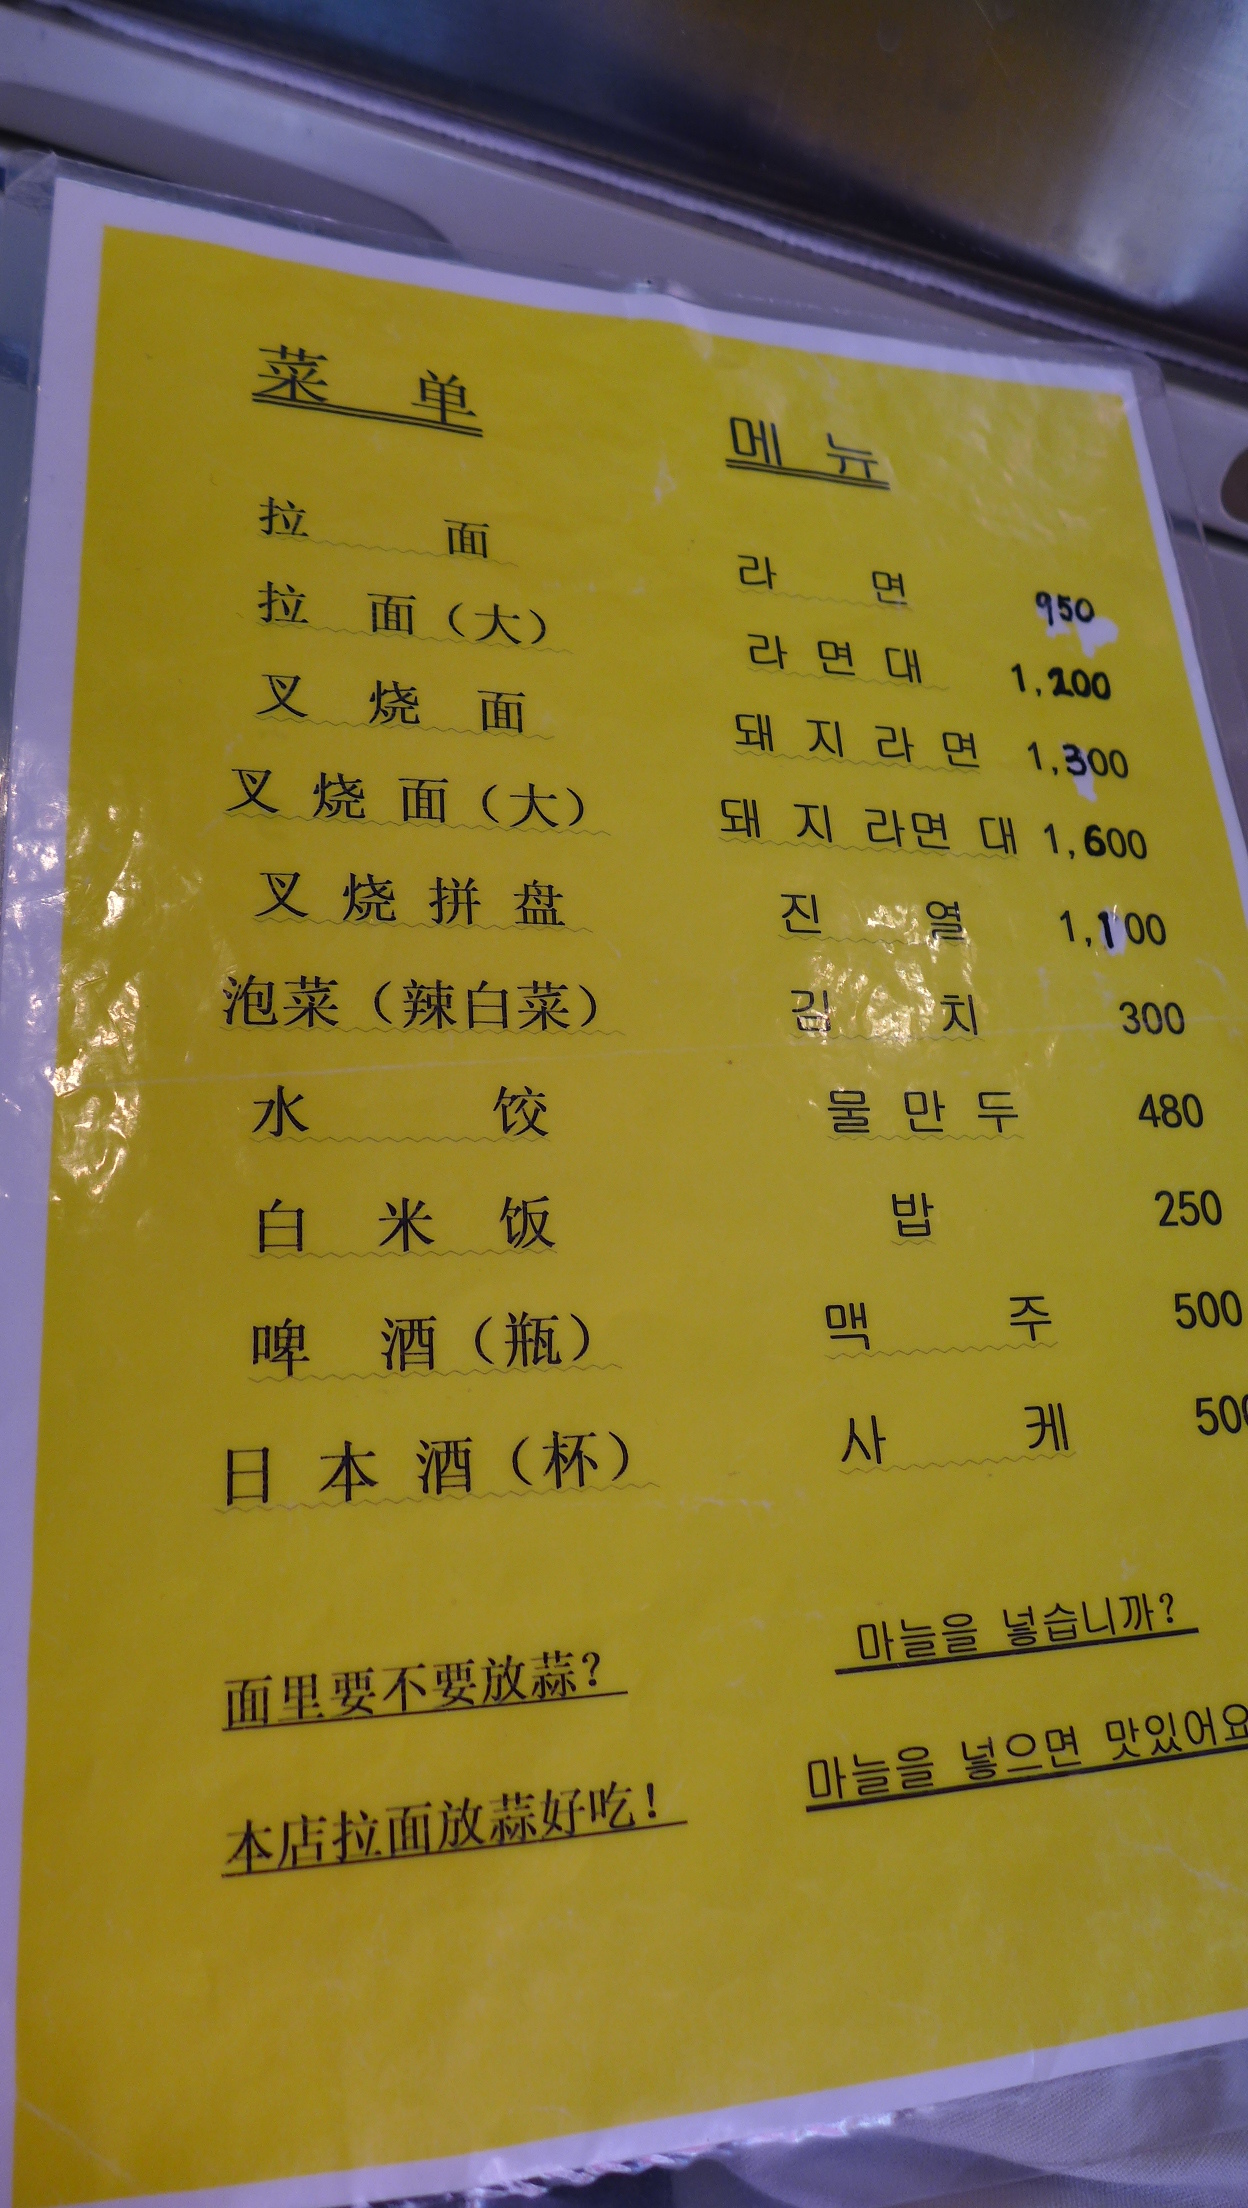 菜单 메뉴
拉面 라면 950
拉面（大） 라면대 1,200
叉烧面 돼지라면 1,300
叉烧面（大） 돼지라면대 1,600
叉烧拼盘 진열 1,100
泡菜（辣白菜） 김치 300
水饺 물만두 480
白米饭 밥 250
啤酒（瓶） 맥주 500
日本酒（杯） 사케 500
面里要不要放蒜？ 마늘을 넣습니까？
本店拉面放蒜好吃！ 마늘을 넣으면 맛있어요